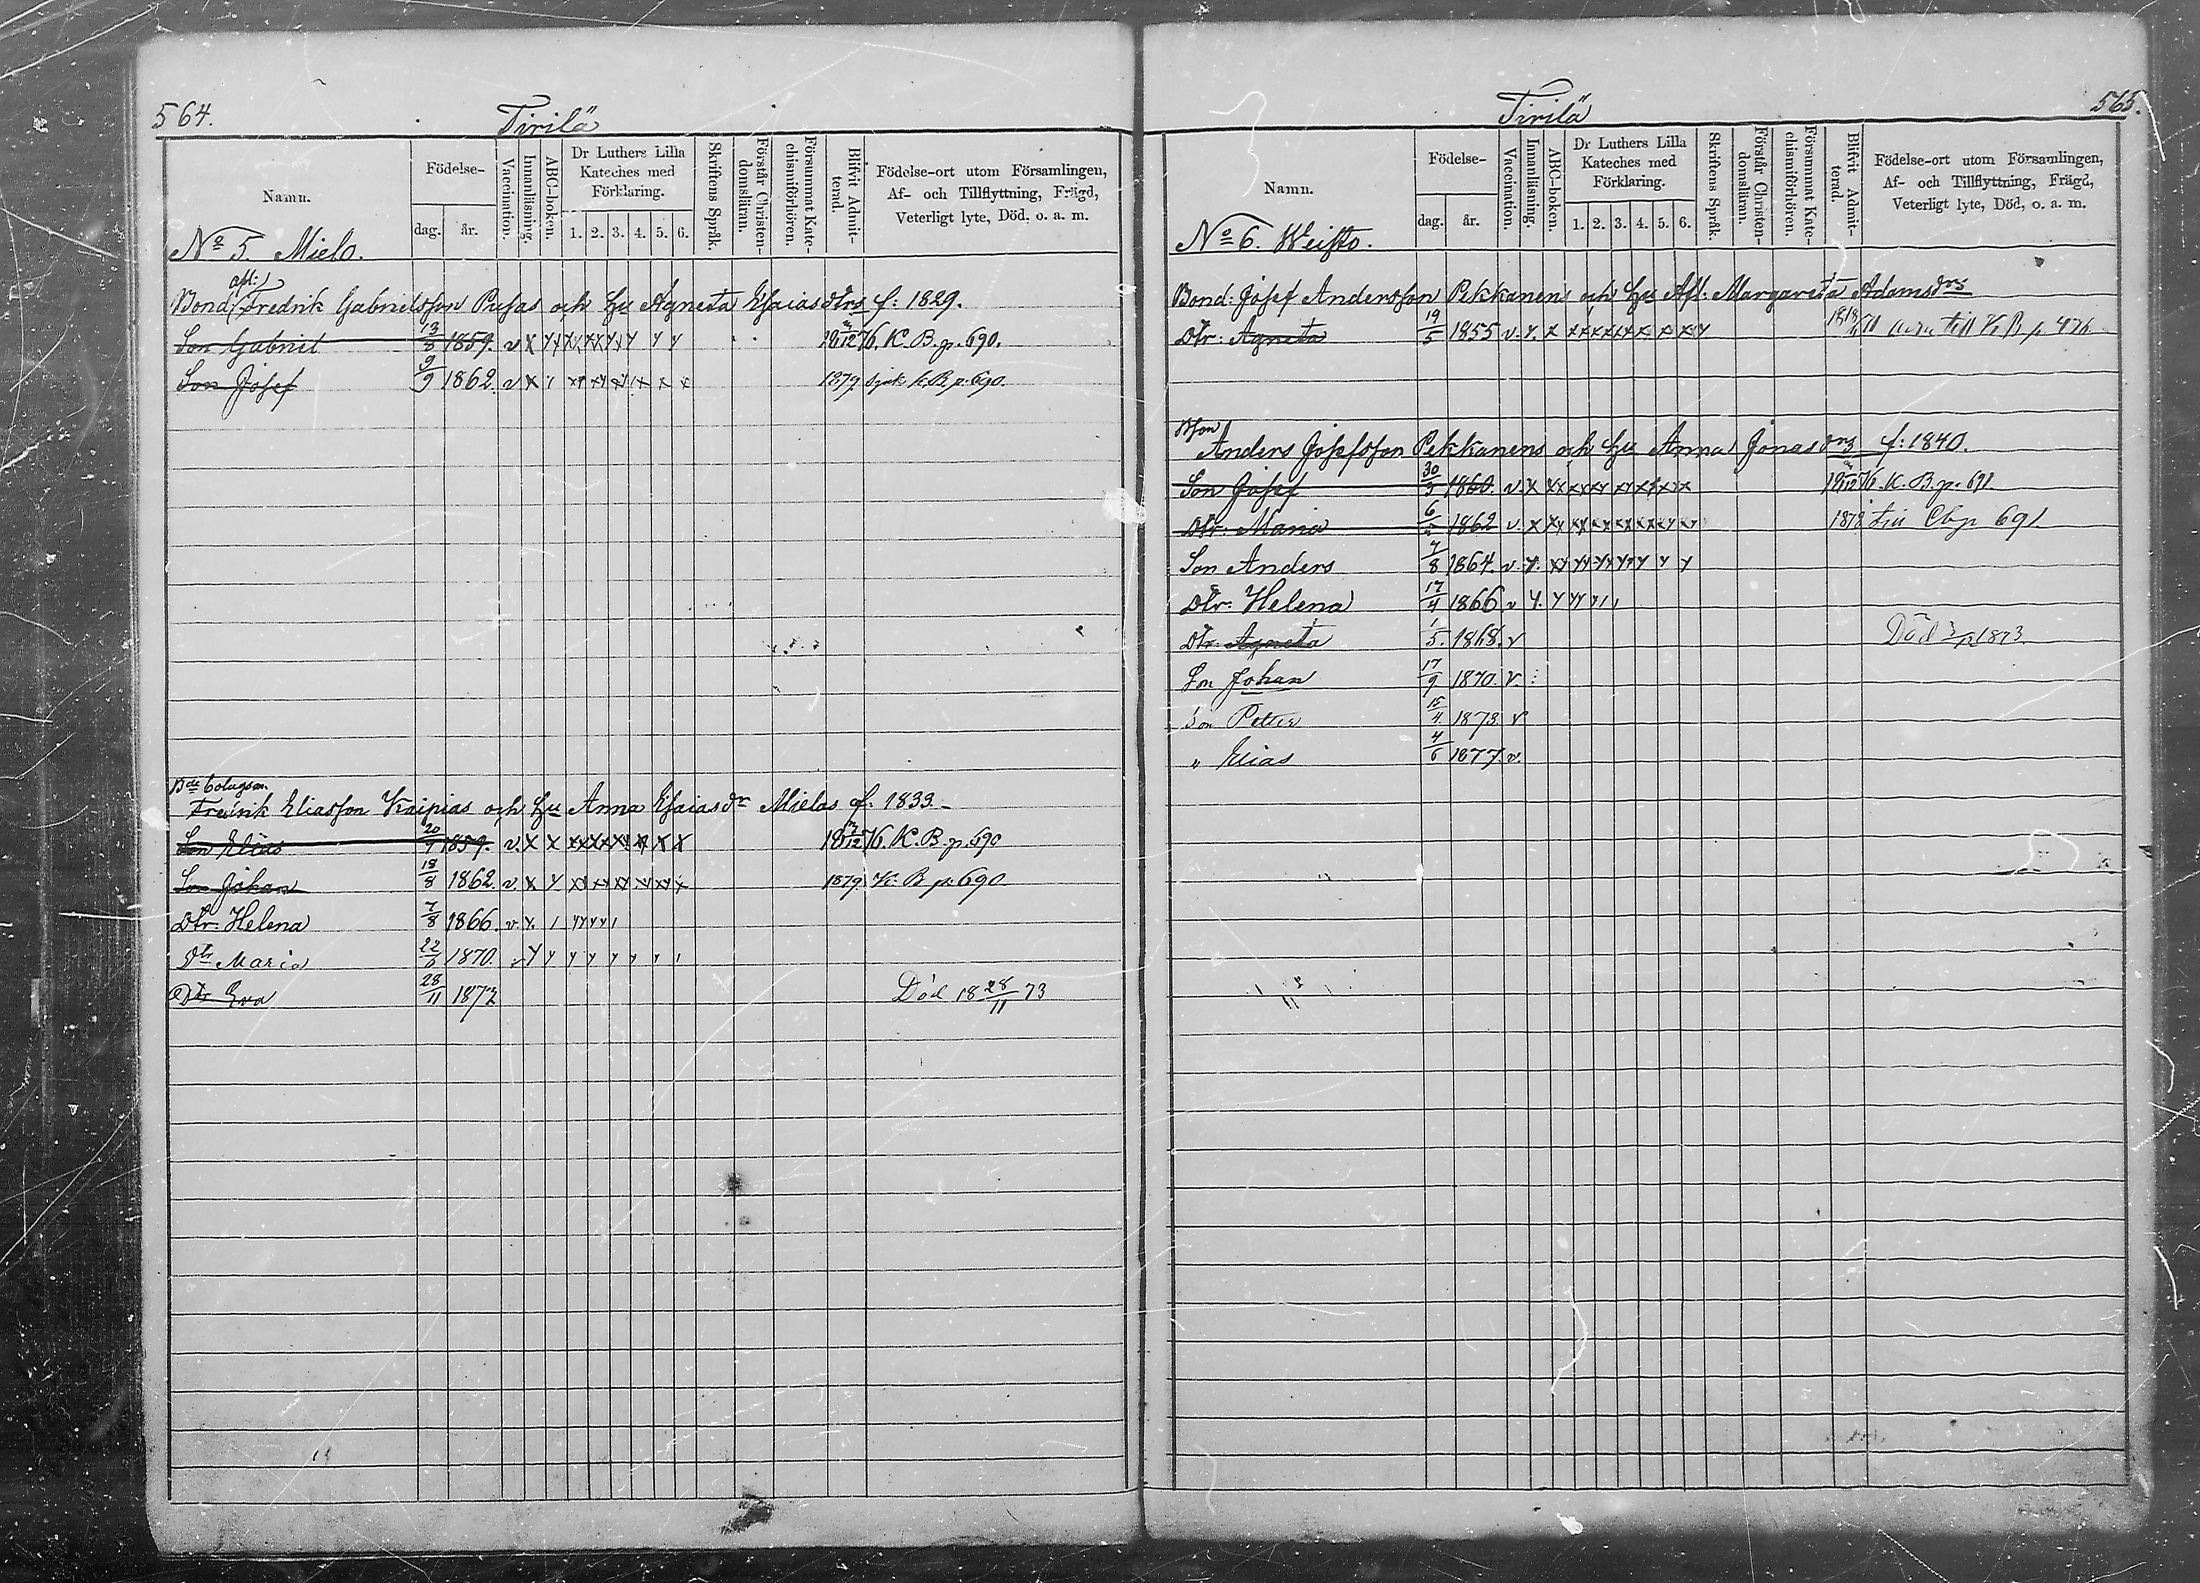 564.
Tirilä
Namn.
Födelse-
dag.
år.
Vaccination.
Innanläsning.
ABC-boken.
Dr Luthers Lilla
Kateches med
Förklaring.
1. 2. 3. 4. 5. 6.
Skriftens Språk.
Förstår Christen-
domsläran.
Försummat Kate-
chismiförhören.
Blifvit Admit-
terad.
Födelse-ort utom Församlingen,
Af- och Tillflyttning, Frägd,
Veterligt lyte, Död. o. a. m.
No 5. Mielo.
afl:
Bond. Fredrik Gabrielsson Pusas och Hu Agneta Esaiasdtrs f: 1829.
Son Gabriel 13/8 1859. v x K. B. p. 690.
Son Josef 9/9 1862. v x 1879 K. B. p. 690.
Bde bolagsm.
Fredrik Eliasson Kaipias och Hu Anna Esaiasdr Mielas f: 1833
Son Elias 20/9 1859. v. x x K. B. p. 690
Son Johan 18/8 1862. v. x 1879 K. B. p. 690
Dtr: Helena 7/8 1866. v.
Dtr Maria 1870.
Dtr Eva 28/11 1872 Död 18 28/11 73
565.
Tirilä
Namn.
Födelse-
dag.
år.
Vaccination.
Innanläsning.
ABC-boken.
Dr Luthers Lilla
Kateches med
Förklaring.
1. 2. 3. 4. 5. 6.
Skriftens Språk.
Förstår Christen-
domslänn.
Försummat Kate-
chismförhören.
Blifvit Admit-
terad.
Födelse-ort utom Församlingen,
Af- och Tillflyttning, Frägd,
Veterligt lyte, Död, o. a. m.
No 6. Weisto.
Bond: Josef Andersson Pekkanens och Hu Afl: Margareta Adamsdrs
Dtr: Agneta 19/5 1855 v. x. x till K B p 476
Anders Josefsson Pekkanens och Hu Anna Jonasdrs f: 1840.
Son Josef 30/3 1860. v. x K. B. p. 691
Dtr. Maria 1862 v. x 1878 691
Son Anders 7/8 1864. v.
Dtr: Helena 17/4 1866. v
Dtr: Agneta 1/5. 1868. v Död 1873
Son Johan 17/9 1870. v.
Son Petter 15/4 1873 v
" Elias 4/6 1877. v.